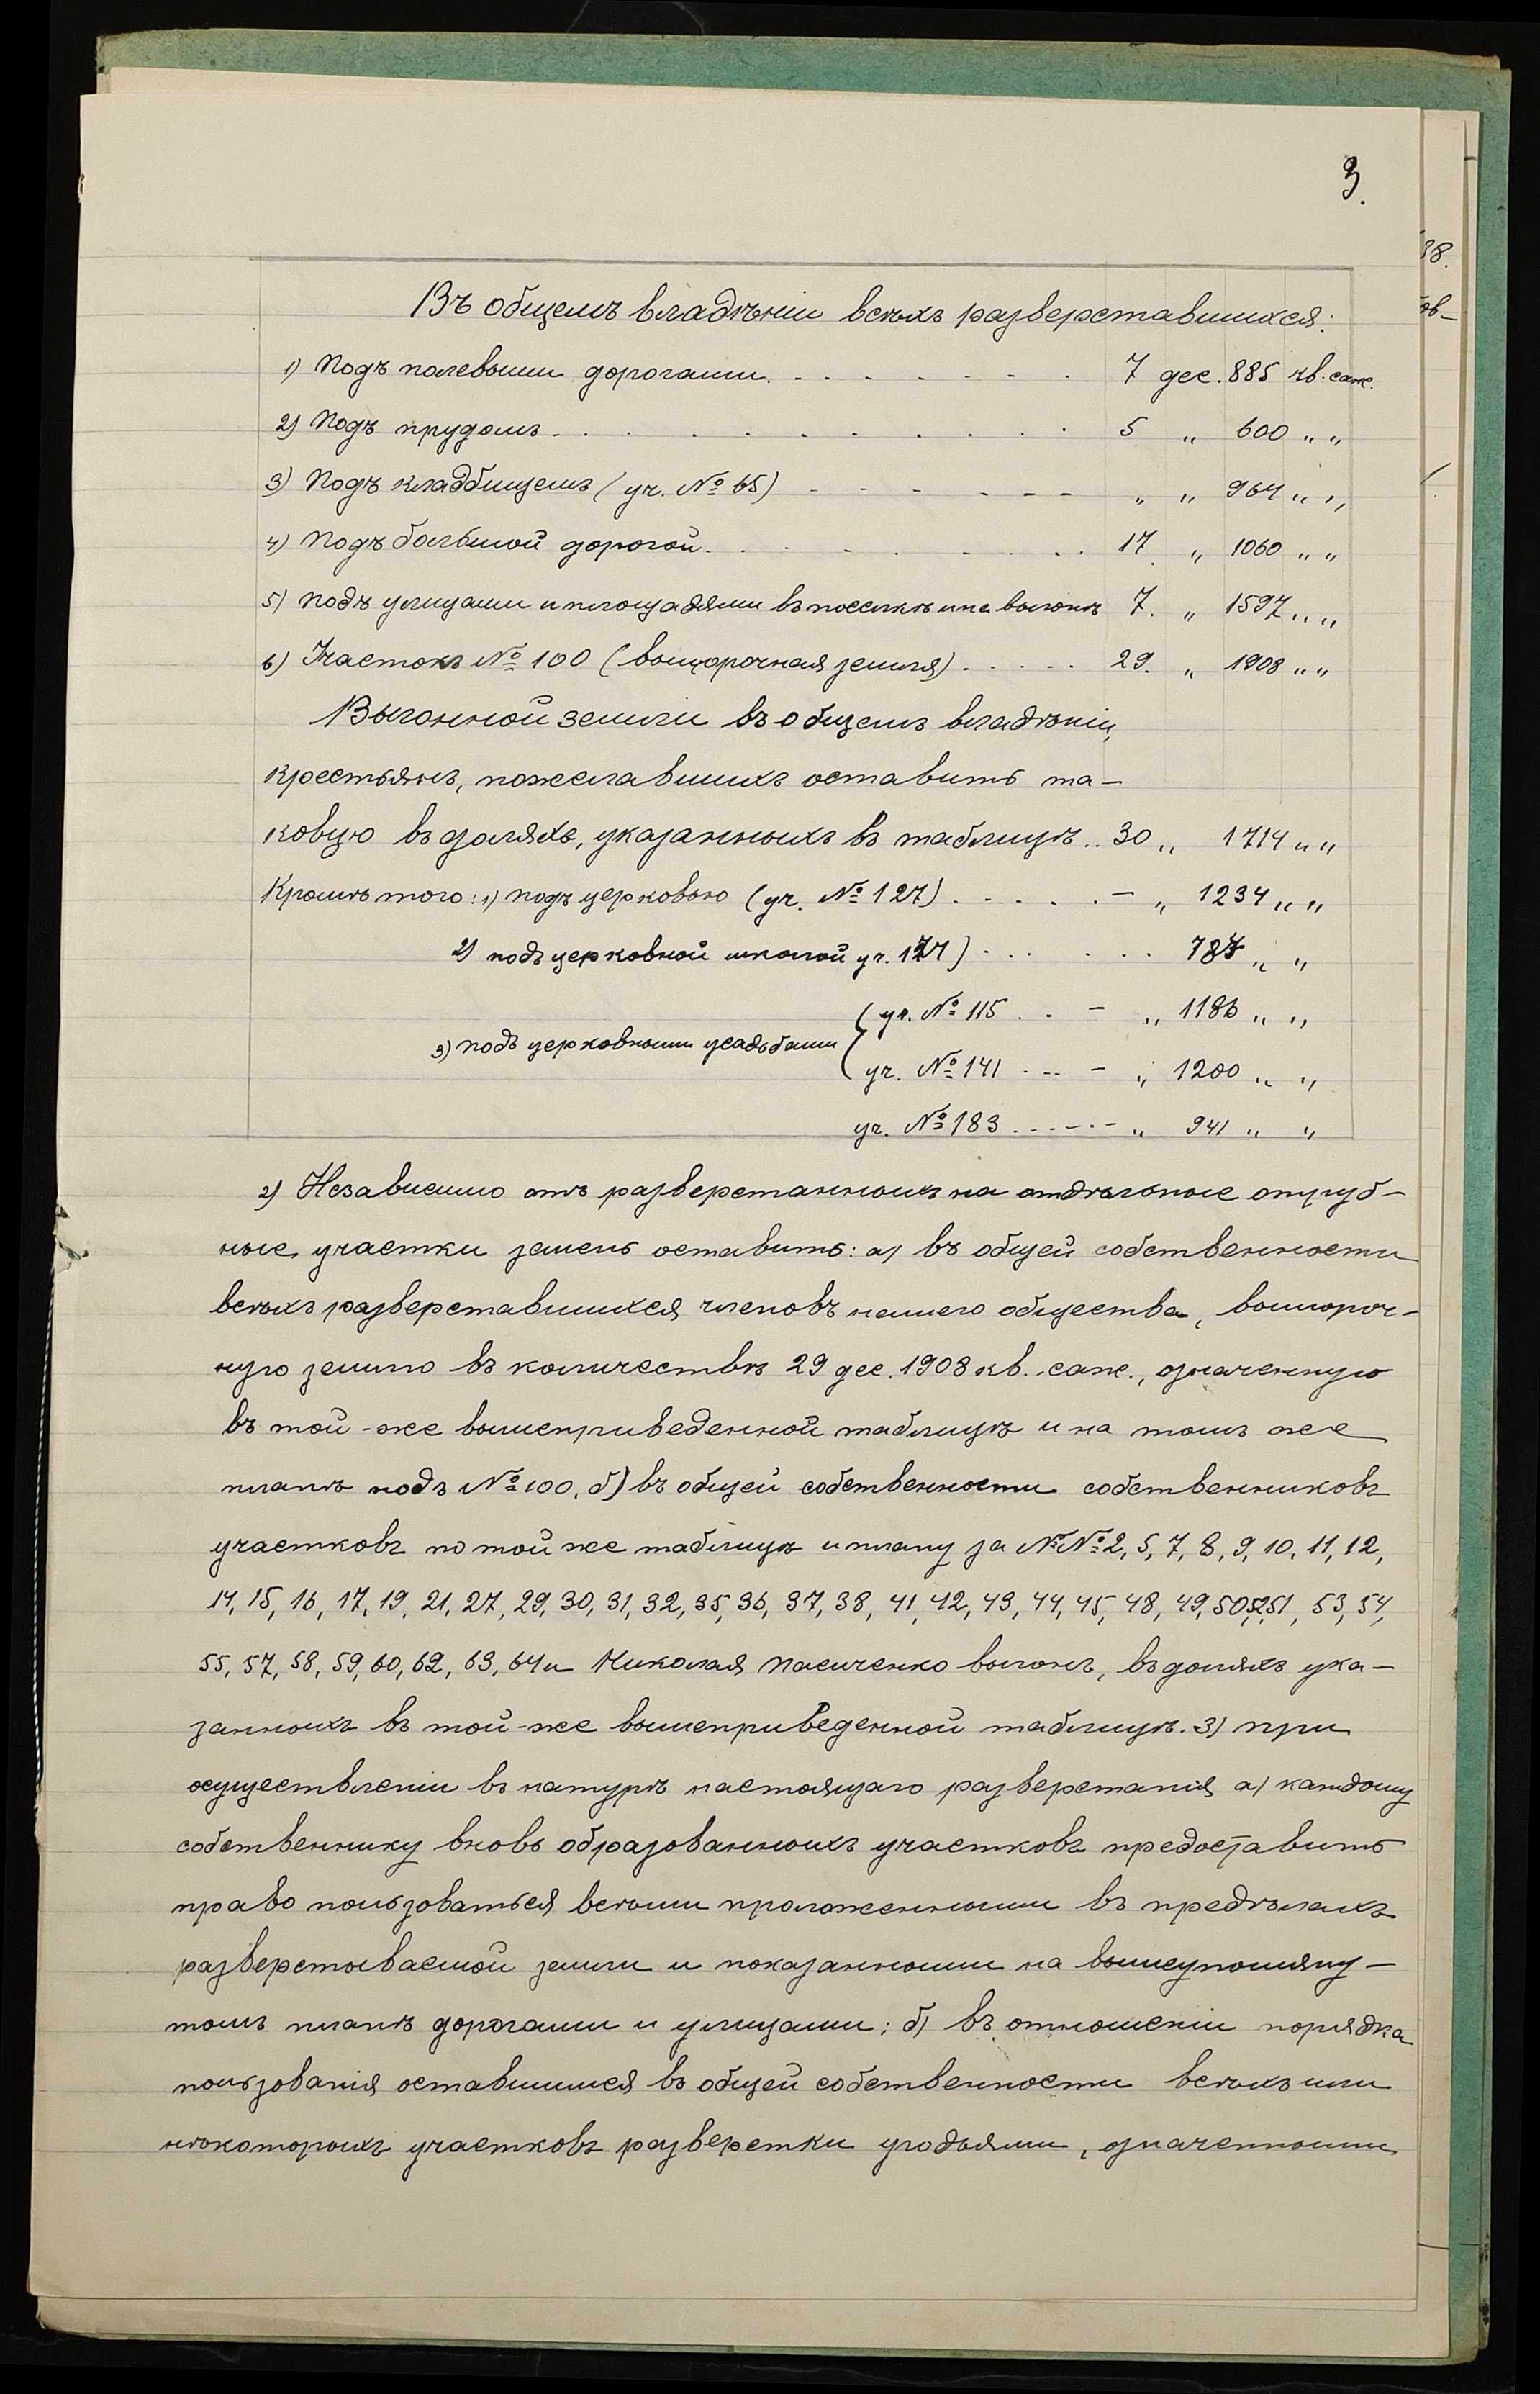 3.
Въ общемъ владѣніи всѣхъ разверставшихся:
1) Подъ полевыми дорогами. . . . . . . . 7 дес. 885 кв. саж.
2) Подъ прудомъ . . . . . . . . . . 5 „ 600 „ „
3) Подъ кладбищемъ (уч. № 65) - - - - - - - „ „ 964 „ „
4) Подъ большой дорогой. . . . . . . . . 17. „ 1060 „ „
5) Подъ улицами и площадями въ поселкѣ и на выгонѣ 7. „ 1597 „ „
6) Участокъ № 100 (выморочная земля) . . . . . 29. „ 1908 „ „
Выгонной земли въ общемъ владѣніи,
крестьянъ, пожелавшихъ оставить та-
ковую въ доляхъ, указанныхъ въ таблицѣ .. 30 „ 1714 „ „
Кромѣ того: 1) подъ церковью (уч. № 127) . . . . . - „ 1234 „ „
2) подъ церковной школой уч. 177) . . . . . . 787 „ „
3) подъ церковными усадьбами ( уч. № 115 . . - „ 1186 „ „
( уч. № 141 . . . - „ 1200 „ „
уч. № 183 . . . - . - „ 941 „ „
2) Независимо отъ разверстанныхъ на отдѣльные отруб-
ные участки земель оставить: а) въ общей собственности
всѣхъ разверставшихся членовъ нашего общества, вымороч-
ную землю въ количествѣ 29 дес. 1908 кв. саж., означенную
въ той-же вышеприведенной таблицѣ и на томъ же
планѣ подъ № 100, б) въ общей собственности собственниковъ
участковъ по той же таблицѣ и плану за №№ 2, 5, 7, 8, 9, 10, 11, 12,
14, 15, 16, 17, 19, 21, 27, 29, 30, 31, 32, 35, 36, 37, 38, 41, 42, 43, 44, 45, 48, 49, 50, 52, 51, 53, 54,
55, 57, 58, 59, 60, 62, 63, 64 и Николая Пасиченко выгонъ, въ доляхъ ука-
занныхъ въ той-же вышеприведенной таблицѣ. 3) при
осуществленіи въ натурѣ настоящаго разверстанія а) каждому
собственнику вновь образованныхъ участковъ предоставить
право пользоваться всѣми проложенными въ предѣлахъ
разверстываемой земли и показанными на вышеупомяну-
томъ планѣ дорогами и улицами; б) въ отношеніи порядка
пользованія оставшимися въ общей собственности всѣхъ или
нѣкоторыхъ участковъ разверстки угодьями, означенными
38.
ов-